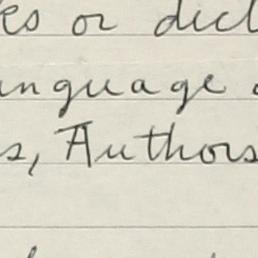 es or dict
anguage
s, Authors